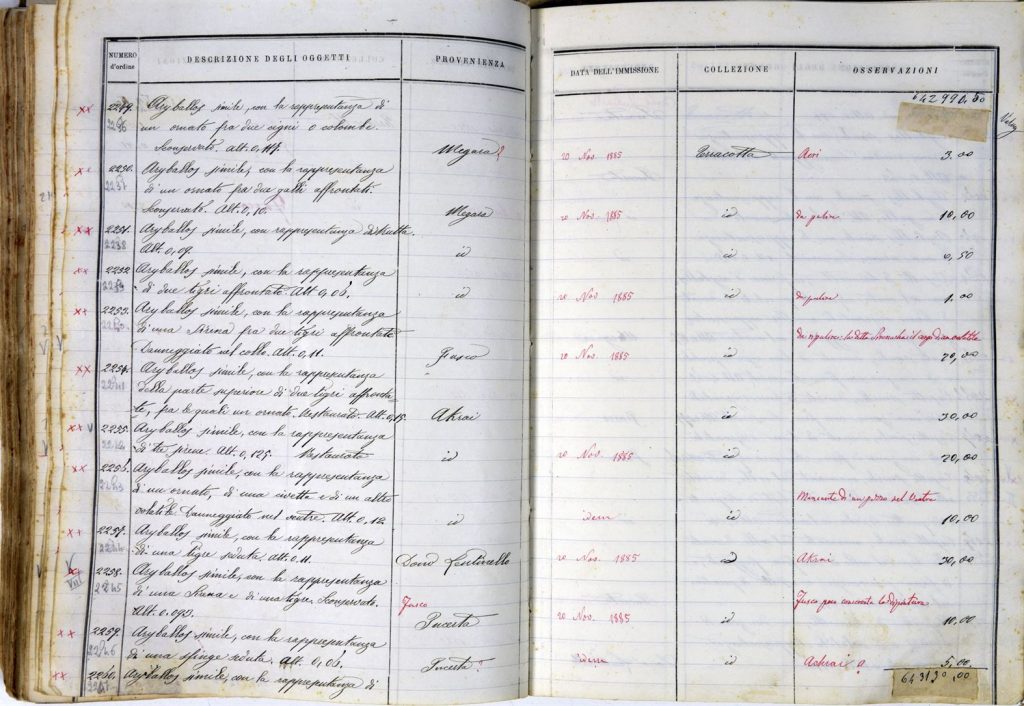 NUMERO d'ordine
DESCRIZIONE DEGLI OGGETTI
PROVENIENZA
2249. Aryballos simile, con la rappresentanza di
2236 un ornato fra due cigni o colombe.
Sconservato. Alt. 0,117. Megara?
2250. Aryballos simile, con la rappresentanza
2237 di un ornato fra due galli affrontati.
Sconservato. Alt. 0,10. Megara
2251. Aryballos simile, con rappresentanza distrutta.
2238 Alt. 0,09. id
2252. Aryballos simile, con la rappresentanza
2239 di due tigri affrontate. Alt. 0,06. id
2253. Aryballos simile, con la rappresentanza
2240 di una Sirena fra due tigri affrontate
Danneggiato nel collo. Alt. 0,11. Fusco
2254. Aryballos simile, con la rappresentanza
2241 della parte superiore di due tigri affronta-
te, fra le quali un ornato. Restaurato. Alt. 0,15. Akrai
2255. Aryballos simile, con la rappresentanza
2242 di tre sirene. Alt. 0,125. Restaurato id
2256. Aryballos simile, con la rappresentanza
2243 di un ornato, di una civetta e di un altro
volatile. Danneggiato nel ventre. Alt. 0,12. id
2257. Aryballos simile, con la rappresentanza
2244 di una tigre seduta. Alt. 0,11. Dono
2258. Aryballos simile, con la rappresentanza
2245 di una Sirena e di una tigre. Sconservato. Fusco
Alt. 0,093. Incerta
2259. Aryballos simile, con la rappresentanza
2246 di una sfinge seduta. Alt. 0,06. Incerta?
2260. Aryballos simile, con la rappresentanza di
2247
DATA DELL'IMMISSIONE
COLLEZIONE
OSSERVAZIONI
642990,50
20 Nov 1885 Terracotta 3,00
20 Nov. 1885 id da pulire 10,00
id 0,50
20 Nov 1885 id da pulire 1,00
20 Nov. 1885 id 70,00
id 30,00
20 Nov. 1885 id 20,00
Mancante di un pezzo nel ventre
idem id 10,00
20 Nov. 1885 id Akrai 30,00
Fusco
20 Nov. 1885 id 10,00
Idem id Achrai? 5,00
643130,00